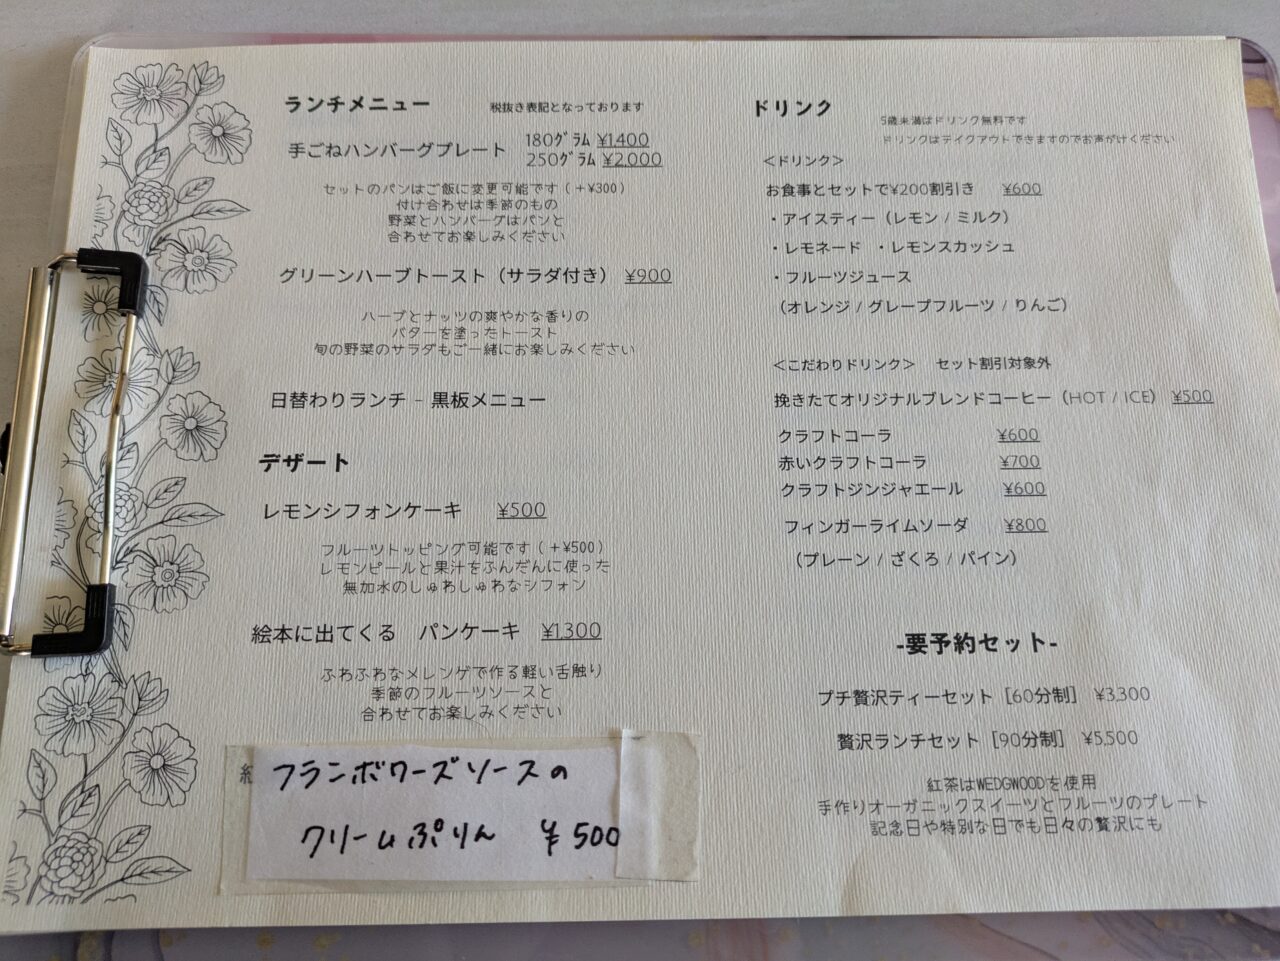 ランチメニュー 税抜き表記となっております
手ごねハンバーグプレート 180グラム ¥1,400
250グラム ¥2,000
セットのパンはご飯に変更可能です（＋¥300）
付け合わせは季節のもの
野菜とハンバーグはパンと
合わせてお楽しみください
グリーンハーブトースト（サラダ付き） ¥900
ハーブとナッツの爽やかな香りの
バターを塗ったトースト
旬の野菜のサラダもご一緒にお楽しみください
日替わりランチ - 黒板メニュー
デザート
レモンシフォンケーキ ¥500
フルーツトッピング可能です（＋¥500）
レモンピールと果汁をふんだんに使った
無加水のしゅわしゅわなシフォン
絵本に出てくる パンケーキ ¥1,300
ふわふわなメレンゲで作る軽い舌触り
季節のフルーツソースと
合わせてお楽しみください
フランボワーズソースの
クリームぷりん ¥500
ドリンク
5歳未満はドリンク無料です
ドリンクはテイクアウトできますのでお声がけください
＜ドリンク＞
お食事とセットで¥200割引き ¥600
・アイスティー（レモン / ミルク）
・レモネード ・レモンスカッシュ
・フルーツジュース
（オレンジ / グレープフルーツ / りんご）
＜こだわりドリンク＞ セット割引対象外
挽きたてオリジナルブレンドコーヒー（HOT / ICE） ¥500
クラフトコーラ ¥600
赤いクラフトコーラ ¥700
クラフトジンジャエール ¥600
フィンガーライムソーダ ¥800
（プレーン / ざくろ / パイン）
-要予約セット-
プチ贅沢ティーセット［60分制］ ¥3,300
贅沢ランチセット［90分制］ ¥5,500
紅茶はWEDGWOODを使用
手作りオーガニックスイーツとフルーツのプレート
記念日や特別な日でも日々の贅沢にも